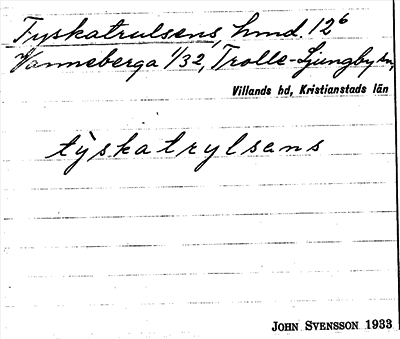 Tyskatrulsens, hmd. 12⁶
Vanneberga 1/32, Trolle-Ljungby sn,
Villands hd, Kristianstads län
tỳskatrylsans
JOHN SVENSSON 1933